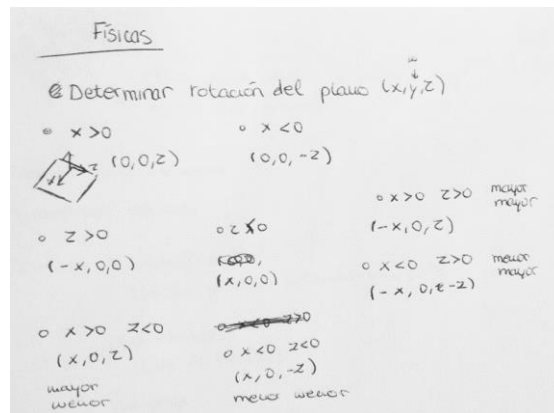 Físicas
Determinar rotación del plano (x,y,z)
x>0
(0,0,z)
x<0
(0,0,-z)
z>0
(-x,0,0)
z<0
(x,0,0)
x>0 z>0 mayor mayor
(-x,0,z)
x<0 z>0 menor mayor
(-x,0,-z)
x>0 z<0
(x,0,z)
mayor
menor
x<0 z>0
x<0 z<0
(x,0,-z)
menor menor